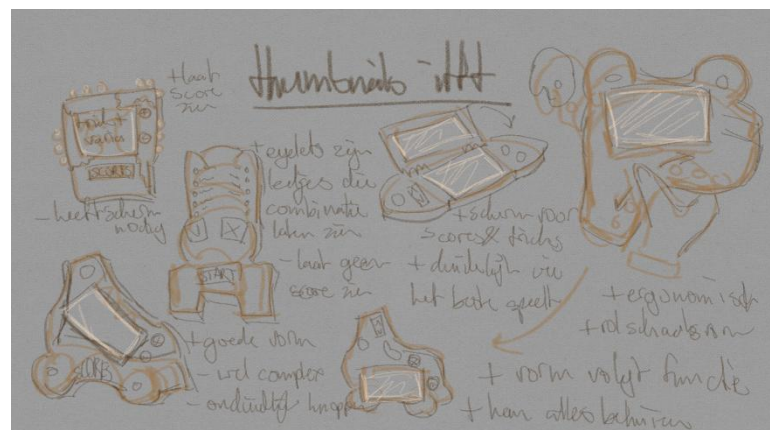 thumbnails
+ laat
score
zien
SCORE
- heeft scherm
nodig
+ eyelets zijn
ledjes die
combinatie
laten zien
- laat geen
score zien
START
+ scherm voor
scores & tricks
+ duidelijk wie
het beste speelt
+ ergonomisch
+ rolschaatsvorm
SCORE
+ goede vorm
- wel complex
- onduidelijk knoppen
+ vorm volgt functie
+ kan alles